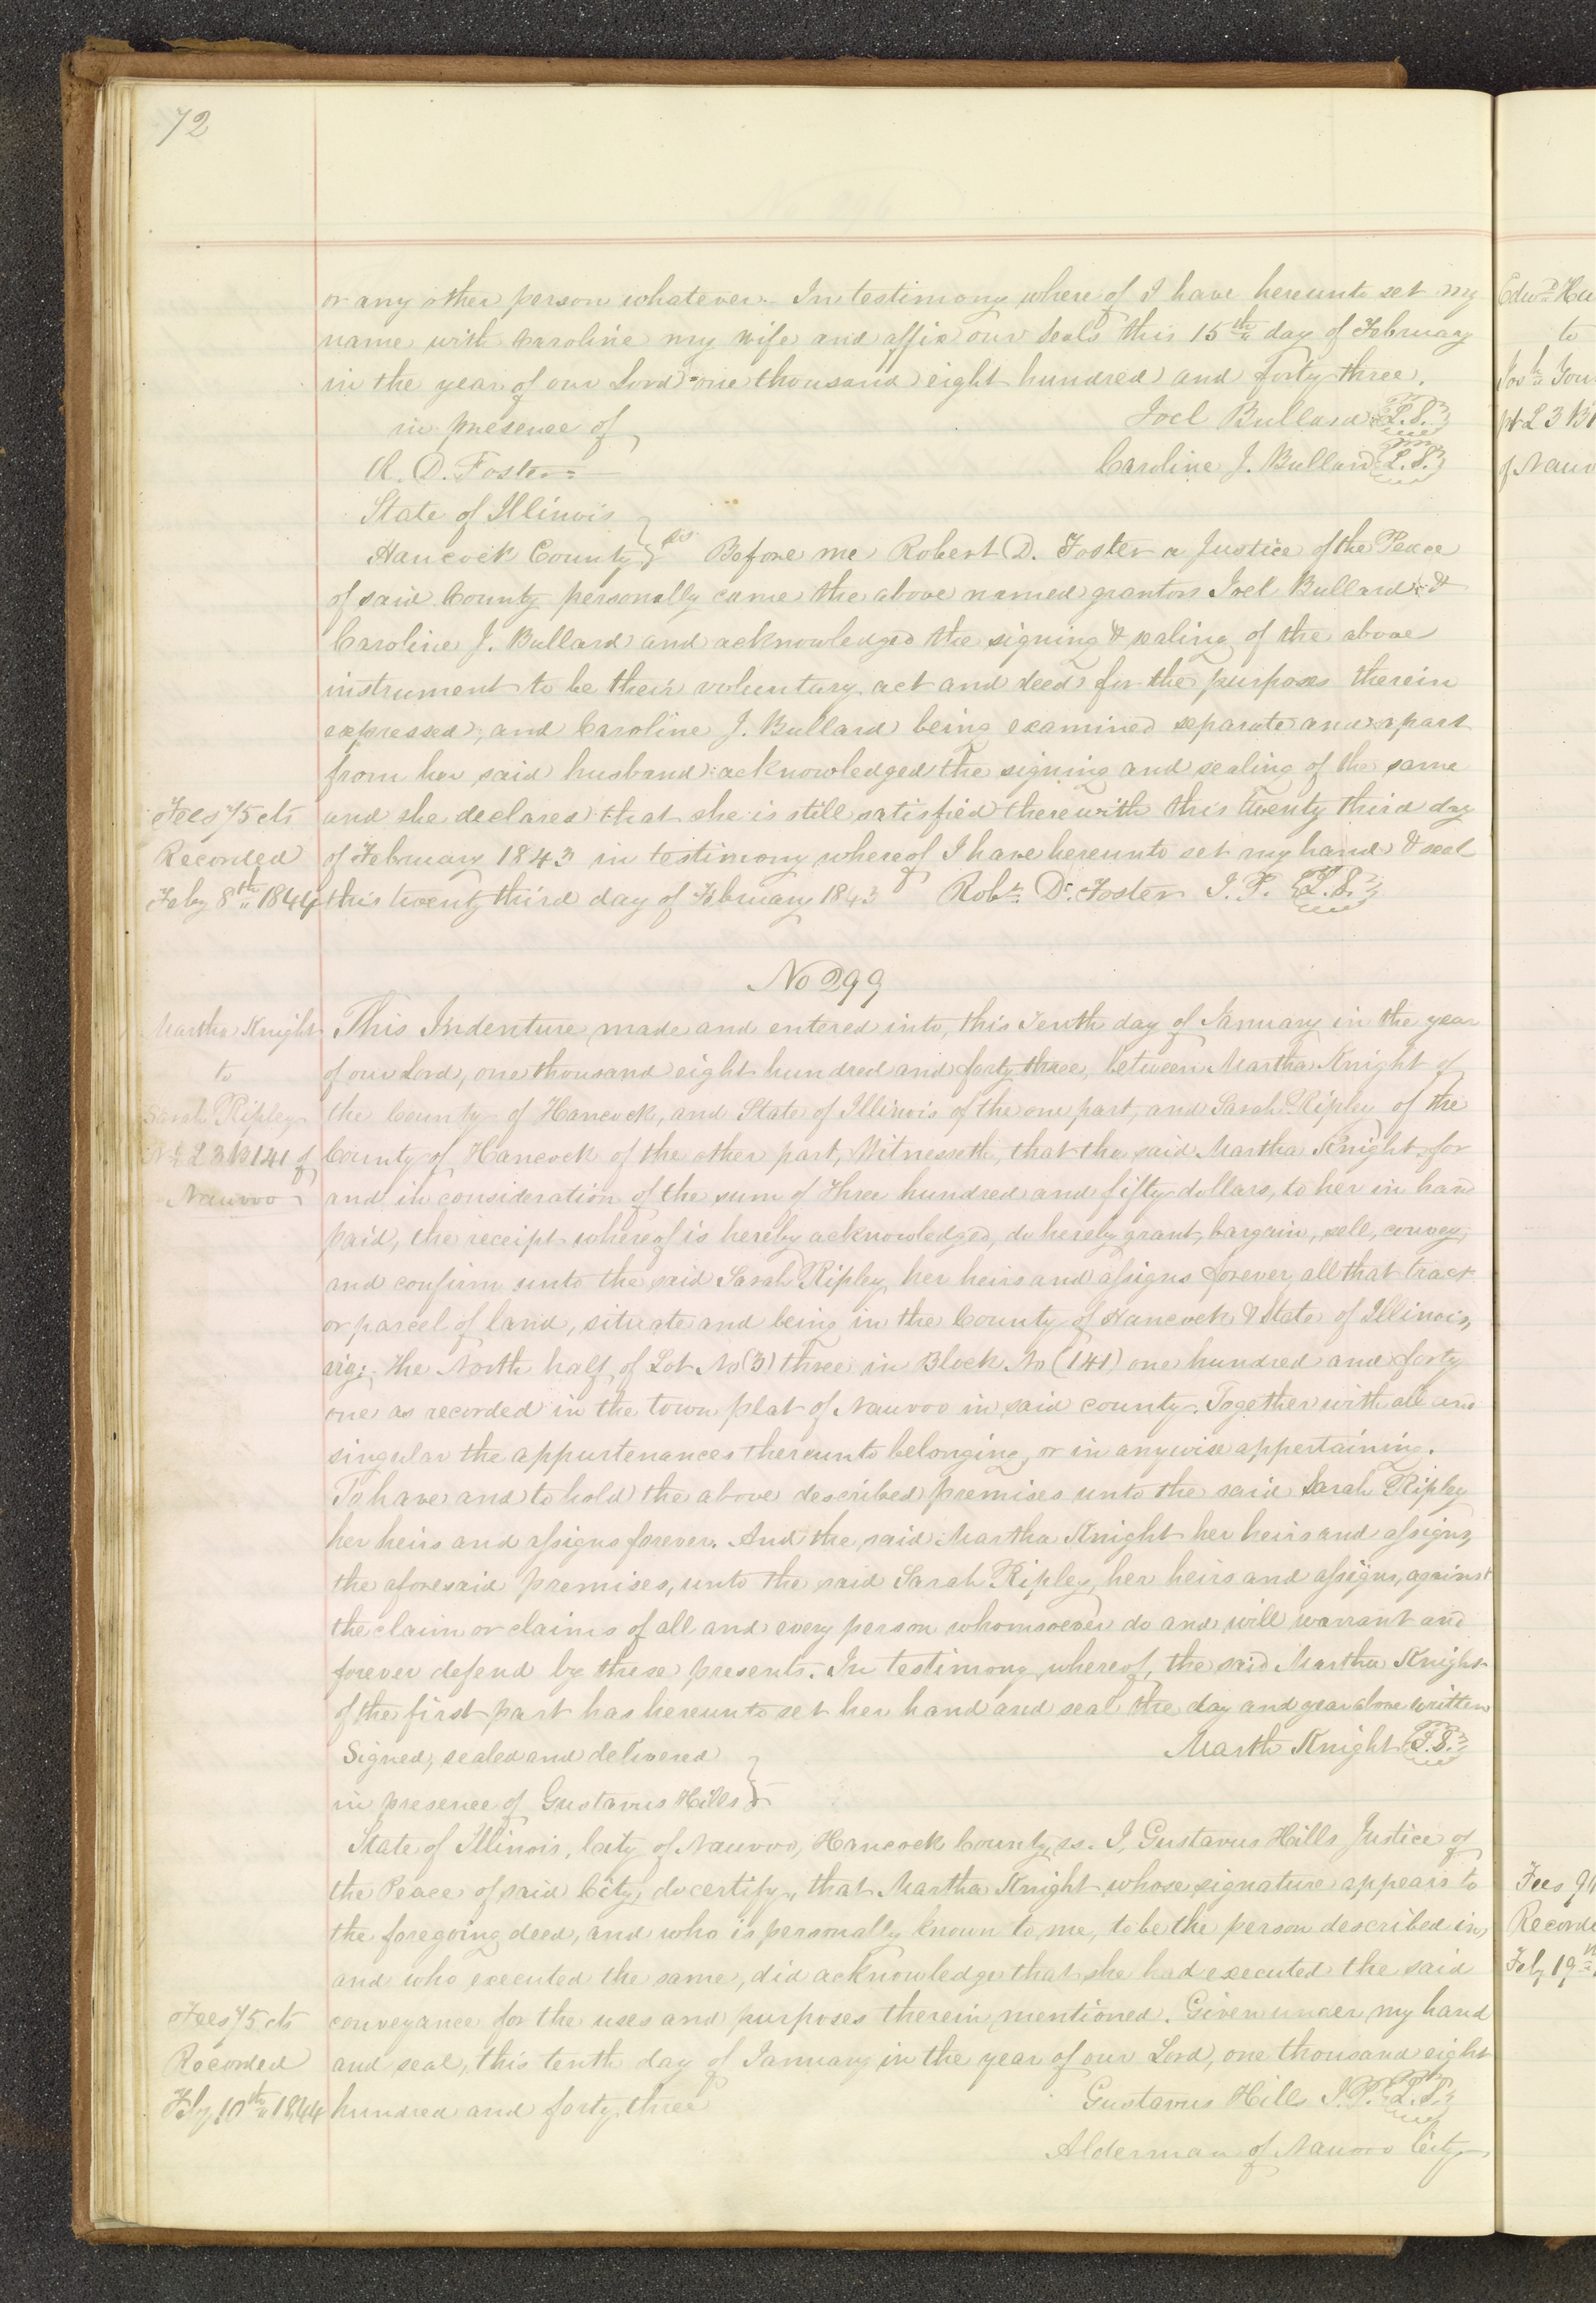 72
or any other person whatever. In testimony where of I have hereunto set my
name with Caroline my wife and affix our Seals this 15th day of February
in the year of our Lord one thousand eight hundred and forty three.
in presence of
Joel Bullard L.S.
R. D. Foster
Caroline J. Bullard L.S.
State of Illinois
Hancock County } ss Before me Robert D. Foster a Justice of the Peace
of said County personally came the above named grantors Joel Bullard &
Caroline J. Bullard and acknowledged the signing & sealing of the above
instrument to be their voluntary act and deed for the purposes therein
expressed; and Caroline J. Bullard being examined separate and apart
from her said husband acknowledged the signing and sealing of the same
and she declared that she is still satisfied therewith this twenty third day
of February 1843 in testimony whereof I have hereunto set my hand & seal
this twenty third day of February 1843 Robt. D. Foster J. P. L.S.
Fees 75 cts
Recorded
Feby 8th 1844
No 299
Martha Knight
to
Sarah Ripley
N½ L 3 B 141 of
Nauvoo
This Indenture made and entered into, this Tenth day of January in the year
of our Lord, one thousand eight hundred and forty three, between Martha Knight of
the County of Hancock, and State of Illinois of the one part, and Sarah Ripley of the
County of Hancock of the other part, Witnesseth, that the said Martha Knight for
and in consideration of the sum of Three hundred and fifty dollars, to her in hand
paid, the receipt whereof is hereby acknowledged, do hereby grant, bargain, sell, convey,
and confirm unto the said Sarah Ripley her heirs and assigns forever, all that tract
or parcel of land, situate and being in the County of Hancock & State of Illinois,
viz; The North half of Lot No (3) three in Block No (141) one hundred and forty
one as recorded in the town plat of Nauvoo in said county. Together with all and
singular the appurtenances thereunto belonging, or in anywise appertaining.
To have and to hold the above described premises unto the said Sarah Ripley
her heirs and assigns forever. And the said Martha Knight her heirs and assigns,
the aforesaid premises, unto the said Sarah Ripley, her heirs and assigns, against
the claim or claims of all and every person whomsoever do and will warrant and
forever defend by these presents. In testimony whereof, the said Martha Knight
of the first part has hereunto set her hand and seal the day and year above written
Signed, sealed and delivered
Marth Knight L.S.
in presence of Gustavus Hills }
State of Illinois, City of Nauvoo, Hancock County, ss. I, Gustavus Hills Justice of
the Peace of said City, do certify, that Martha Knight whose signature appears to
the foregoing deed, and who is personally known to me, to be the person described in,
and who executed the same, did acknowledge that she had executed the said
conveyance for the uses and purposes therein mentioned. Given under my hand
and seal, this tenth day of January in the year of our Lord, one thousand eight
hundred and forty three
Fees 75 cts
Recorded
Feby 10th 1844
Gustavus Hills J.P. L.S.
Alderman of Nauvoo City
Edwd Hu
to
Josh
pt L 3 Bl
of Nauv
Fees
Recorde
Feby 19th